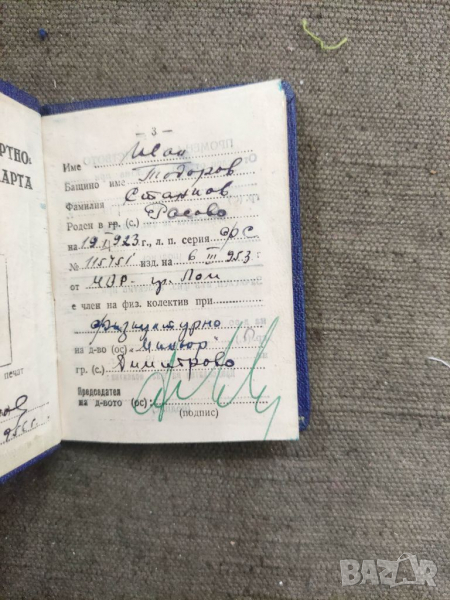 РТНО-
АРТА
печат
— 3 —
Име Иван
Бащино име Тодоров
Фамилия Станков
Роден в гр. (с.) Расово
на 19. 923 г., л. п. серия ФС
№ 115451 изд. на 6 III 953 г
от гр. Лом
е член на физ. колектив при
физкултурно
на д-во (ос) "Миньор"
гр. (с.) Димитрово
Председател
на д-вото (ос):
(подпис)
BAZAR